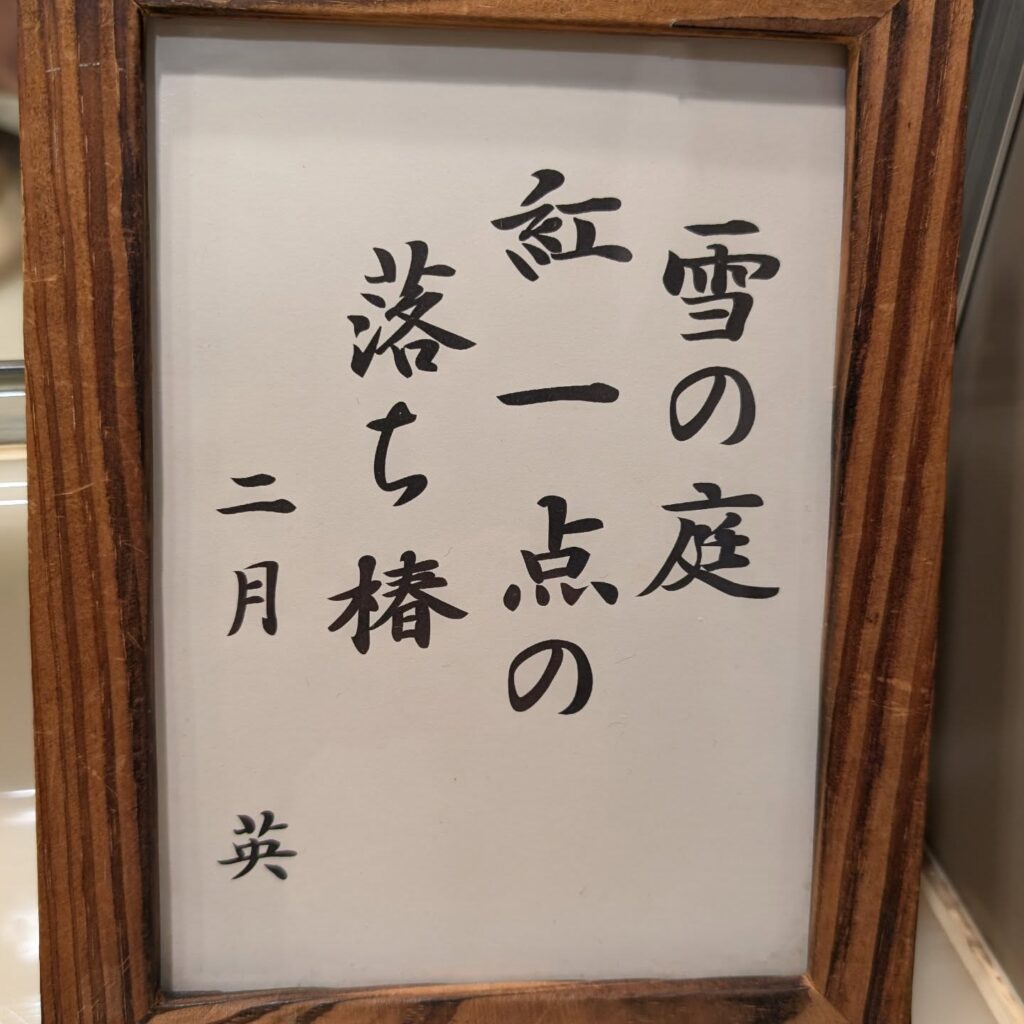 雪の庭
紅一点の
落ち椿
二月 英